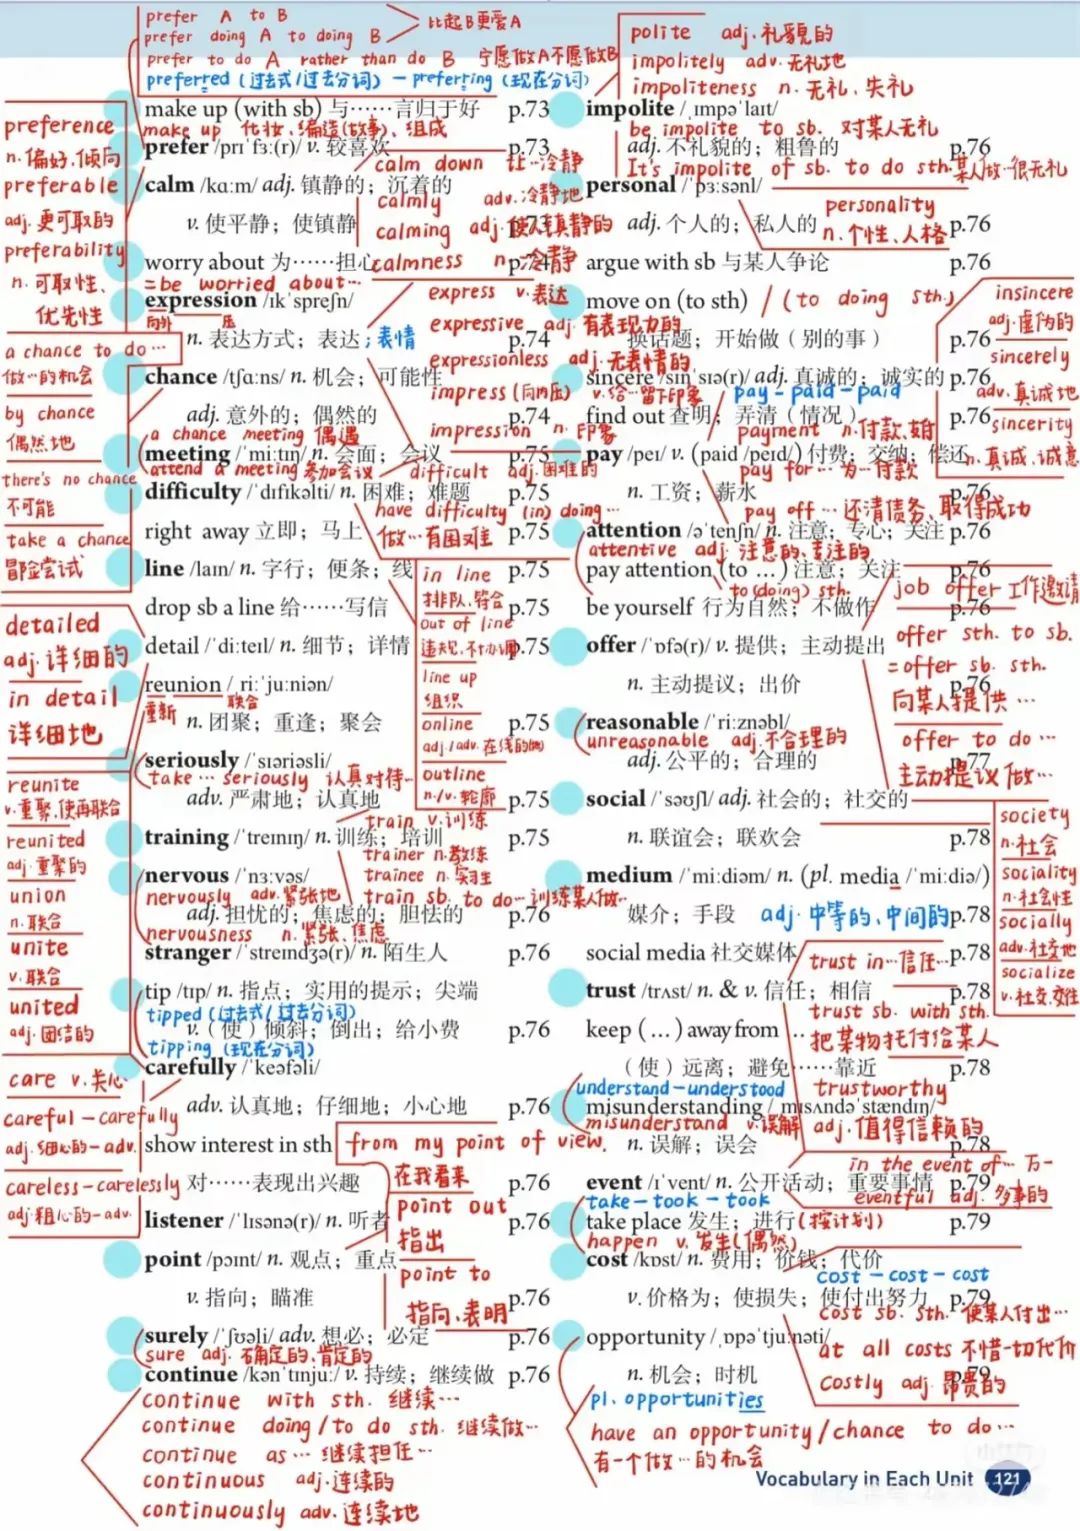 prefer A to B
prefer doing A to doing B
比起B更爱A
prefer to do A rather than do B 宁愿做A不愿做B
preferred (过去式/过去分词) — preferring (现在分词)
make up (with sb) 与……言归于好 p.73
make up 化妆、编造(故事)、组成
prefer /prɪˈfɜː(r)/ v. 较喜欢 p.73
preference
n. 偏好,倾向
preferable
adj. 更可取的
preferability
n. 可取性、
优先性
calm /kɑːm/ adj. 镇静的；沉着的
v. 使平静；使镇静 p.73
calm down 让…冷静
calmly adv. 冷静地
calming adj. 使人镇静的
calmness n. 冷静
worry about 为……担心 p.74
=be worried about…
expression /ɪkˈspreʃn/
向外 压
n. 表达方式；表达；表情 p.74
express v. 表达
expressive adj. 有表现力的
expressionless adj. 无表情的
impress (向内压) v. 给…留下印象
impression n. 印象
a chance to do…
做…的机会
by chance
偶然地
there's no chance
不可能
take a chance
冒险尝试
chance /tʃɑːns/ n. 机会；可能性
adj. 意外的；偶然的 p.74
a chance meeting 偶遇
meeting /ˈmiːtɪŋ/ n. 会面；会议 p.75
attend a meeting 参加会议
difficult adj. 困难的
difficulty /ˈdɪfɪkəlti/ n. 困难；难题 p.75
have difficulty (in) doing…
做…有困难
right away 立即；马上 p.75
line /laɪn/ n. 字行；便条；线 p.75
in line
排队,符合
out of line
违规,不协调
line up
组织
online
adj./adv. 在线的(地)
outline
n./v. 轮廓
drop sb a line 给……写信 p.75
detail /ˈdiːteɪl/ n. 细节；详情 p.75
detailed
adj. 详细的
in detail
详细地
reunion /ˌriːˈjuːniən/
重新 联合
n. 团聚；重逢；聚会 p.75
reunite
v. 重聚,使再联合
reunited
adj. 重聚的
union
n. 联合
unite
v. 联合
united
adj. 团结的
seriously /ˈsɪəriəsli/
take … seriously 认真对待…
adv. 严肃地；认真地 p.75
train v. 训练
training /ˈtreɪnɪŋ/ n. 训练；培训 p.75
trainer n. 教练
trainee n. 实习生
train sb. to do… 训练某人做…
nervous /ˈnɜːvəs/
nervously adv. 紧张地
adj. 担忧的；焦虑的；胆怯的 p.76
nervousness n. 紧张、焦虑
stranger /ˈstreɪndʒə(r)/ n. 陌生人 p.76
tip /tɪp/ n. 指点；实用的提示；尖端
tipped (过去式/过去分词)
v. (使) 倾斜；倒出；给小费 p.76
tipping (现在分词)
carefully /ˈkeəfəli/
adv. 认真地；仔细地；小心地 p.76
care v. 关心
careful — carefully
adj. 细心的 — adv.
careless — carelessly
adj. 粗心的 — adv.
show interest in sth
对……表现出兴趣 p.76
from my point of view.
在我看来
listener /ˈlɪsənə(r)/ n. 听者 p.76
point out
指出
point /pɔɪnt/ n. 观点；重点
point to
指向、表明
v. 指向；瞄准 p.76
surely /ˈʃʊəli/ adv. 想必；必定 p.76
sure adj. 确定的、肯定的
continue /kənˈtɪnjuː/ v. 持续；继续做 p.76
continue with sth. 继续…
continue doing/to do sth. 继续做…
continue as … 继续担任…
continuous adj. 连续的
continuously adv. 连续地
polite adj. 礼貌的
impolitely adv. 无礼地
impoliteness n. 无礼、失礼
impolite /ˌɪmpəˈlaɪt/
be impolite to sb. 对某人无礼
adj. 不礼貌的；粗鲁的 p.76
It's impolite of sb. to do sth. 某人做…很无礼
personal /ˈpɜːsənl/
adj. 个人的；私人的 p.76
personality
n. 个性、人格
argue with sb 与某人争论 p.76
move on (to sth) / (to doing sth.)
换话题；开始做（别的事） p.76
insincere
adj. 虚伪的
sincerely
adv. 真诚地
sincerity
n. 真诚、诚意
sincere /sɪnˈsɪə(r)/ adj. 真诚的；诚实的 p.76
pay - paid - paid
find out 查明；弄清（情况） p.76
payment n. 付款、
pay /peɪ/ v. (paid /peɪd/) 付费；交纳；偿还
pay for… 为…付款
n. 工资；薪水 p.76
pay off … 还清债务、取得成功
attention /əˈtenʃn/ n. 注意；专心；关注 p.76
attentive adj. 注意的、专注的
pay attention (to …) 注意；关注 p.76
to (doing) sth.
be yourself 行为自然；不做作 p.76
job offer 工作邀请
offer sth. to sb.
=offer sb. sth.
向某人提供 …
offer to do …
主动提议做…
offer /ˈɒfə(r)/ v. 提供；主动提出
n. 主动提议；出价 p.76
reasonable /ˈriːznəbl/
unreasonable adj. 不合理的
adj. 公平的；合理的 p.77
social /ˈsəʊʃl/ adj. 社会的；社交的
n. 联谊会；联欢会 p.78
society
n. 社会
sociality
n. 社会性
socially
adv. 社交地
socialize
v. 社交,交往
medium /ˈmiːdiəm/ n. (pl. media /ˈmiːdiə/)
媒介；手段 adj. 中等的、中间的 p.78
social media 社交媒体 p.78
trust in … 信任…
trust /trʌst/ n. & v. 信任；相信 p.78
trust sb. with sth.
把某物托付给某人
keep (…) away from …
（使）远离；避免……靠近 p.78
trustworthy
adj. 值得信赖的
understand - understood
misunderstanding /ˌmɪsʌndəˈstændɪŋ/
misunderstand v. 误解
n. 误解；误会 p.78
in the event of … 万一
event /ɪˈvent/ n. 公开活动；重要事情 p.79
eventful adj. 多事的
take - took - took
take place 发生；进行 (按计划) p.79
happen v. 发生 (偶然)
cost /kɒst/ n. 费用；价钱；代价
cost - cost - cost
v. 价格为；使损失；使付出努力 p.79
cost sb. sth. 使某人付出…
at all costs 不惜一切代价
costly adj. 昂贵的
opportunity /ˌɒpəˈtjuːnəti/
n. 机会；时机 p.79
pl. opportunities
have an opportunity/chance to do …
有一个做…的机会
Vocabulary in Each Unit 121